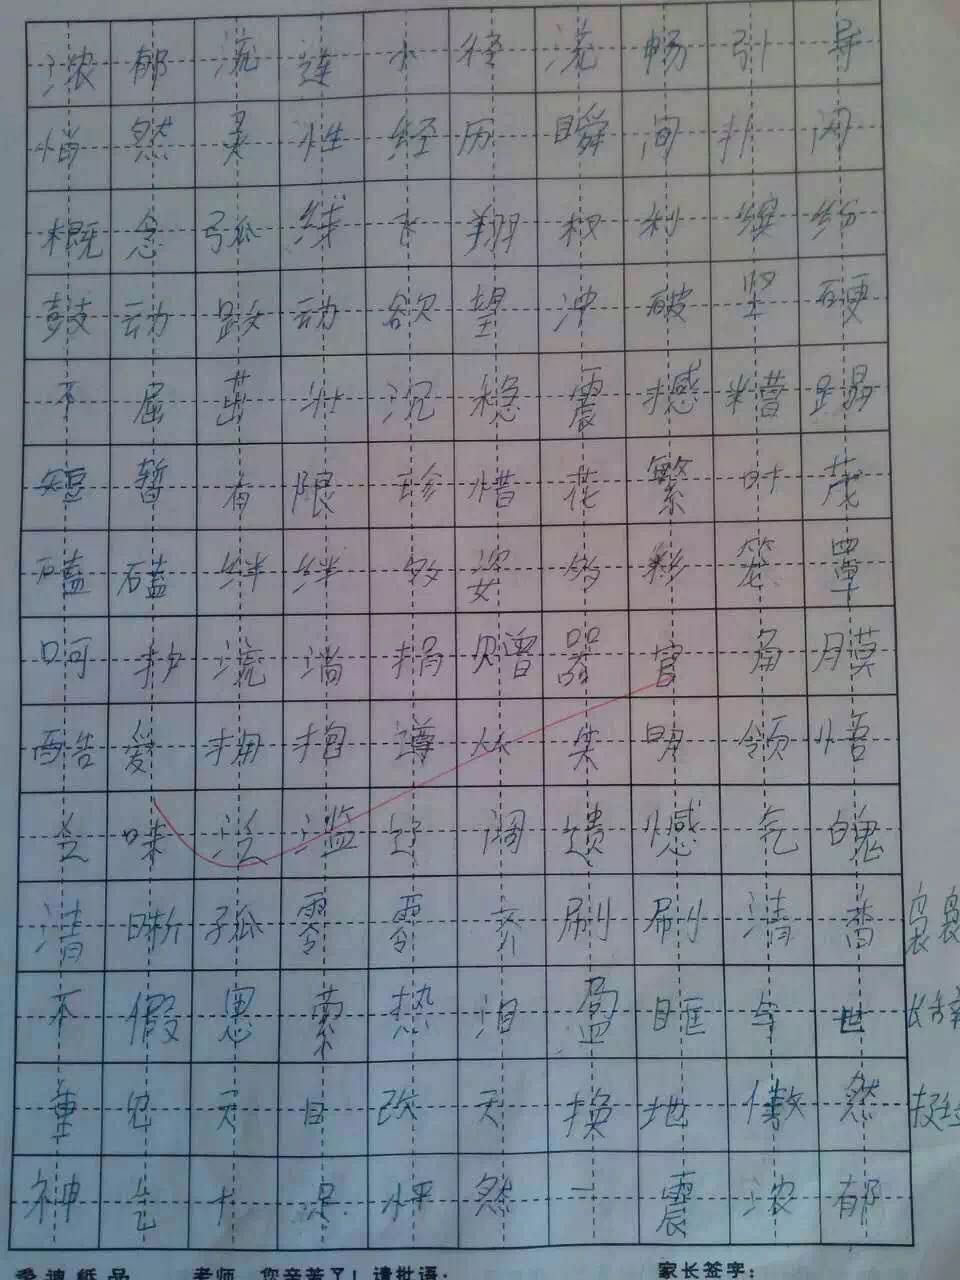 浓郁流连小径流畅引导
悄然灵性经历瞬间扑闪
概念弧线飞翔权利缤纷
鼓动鼓动欲望冲破坚硬
不屈茁壮沉稳震撼糟蹋
短暂有限珍惜花繁叶茂
磕磕绊绊多姿多彩笼罩
呵护流淌捐赠器官角膜
酷爱拥抱遵从失明领悟
乏味泛滥过滤遗憾气魄
清晰孤零零齐刷刷清香袅袅
不假思索热泪盈眶与世长辞
重见天日改天换地憿然挺
神气十足怦然一震浓郁
老师,您辛苦了!请批语: 家长签字: